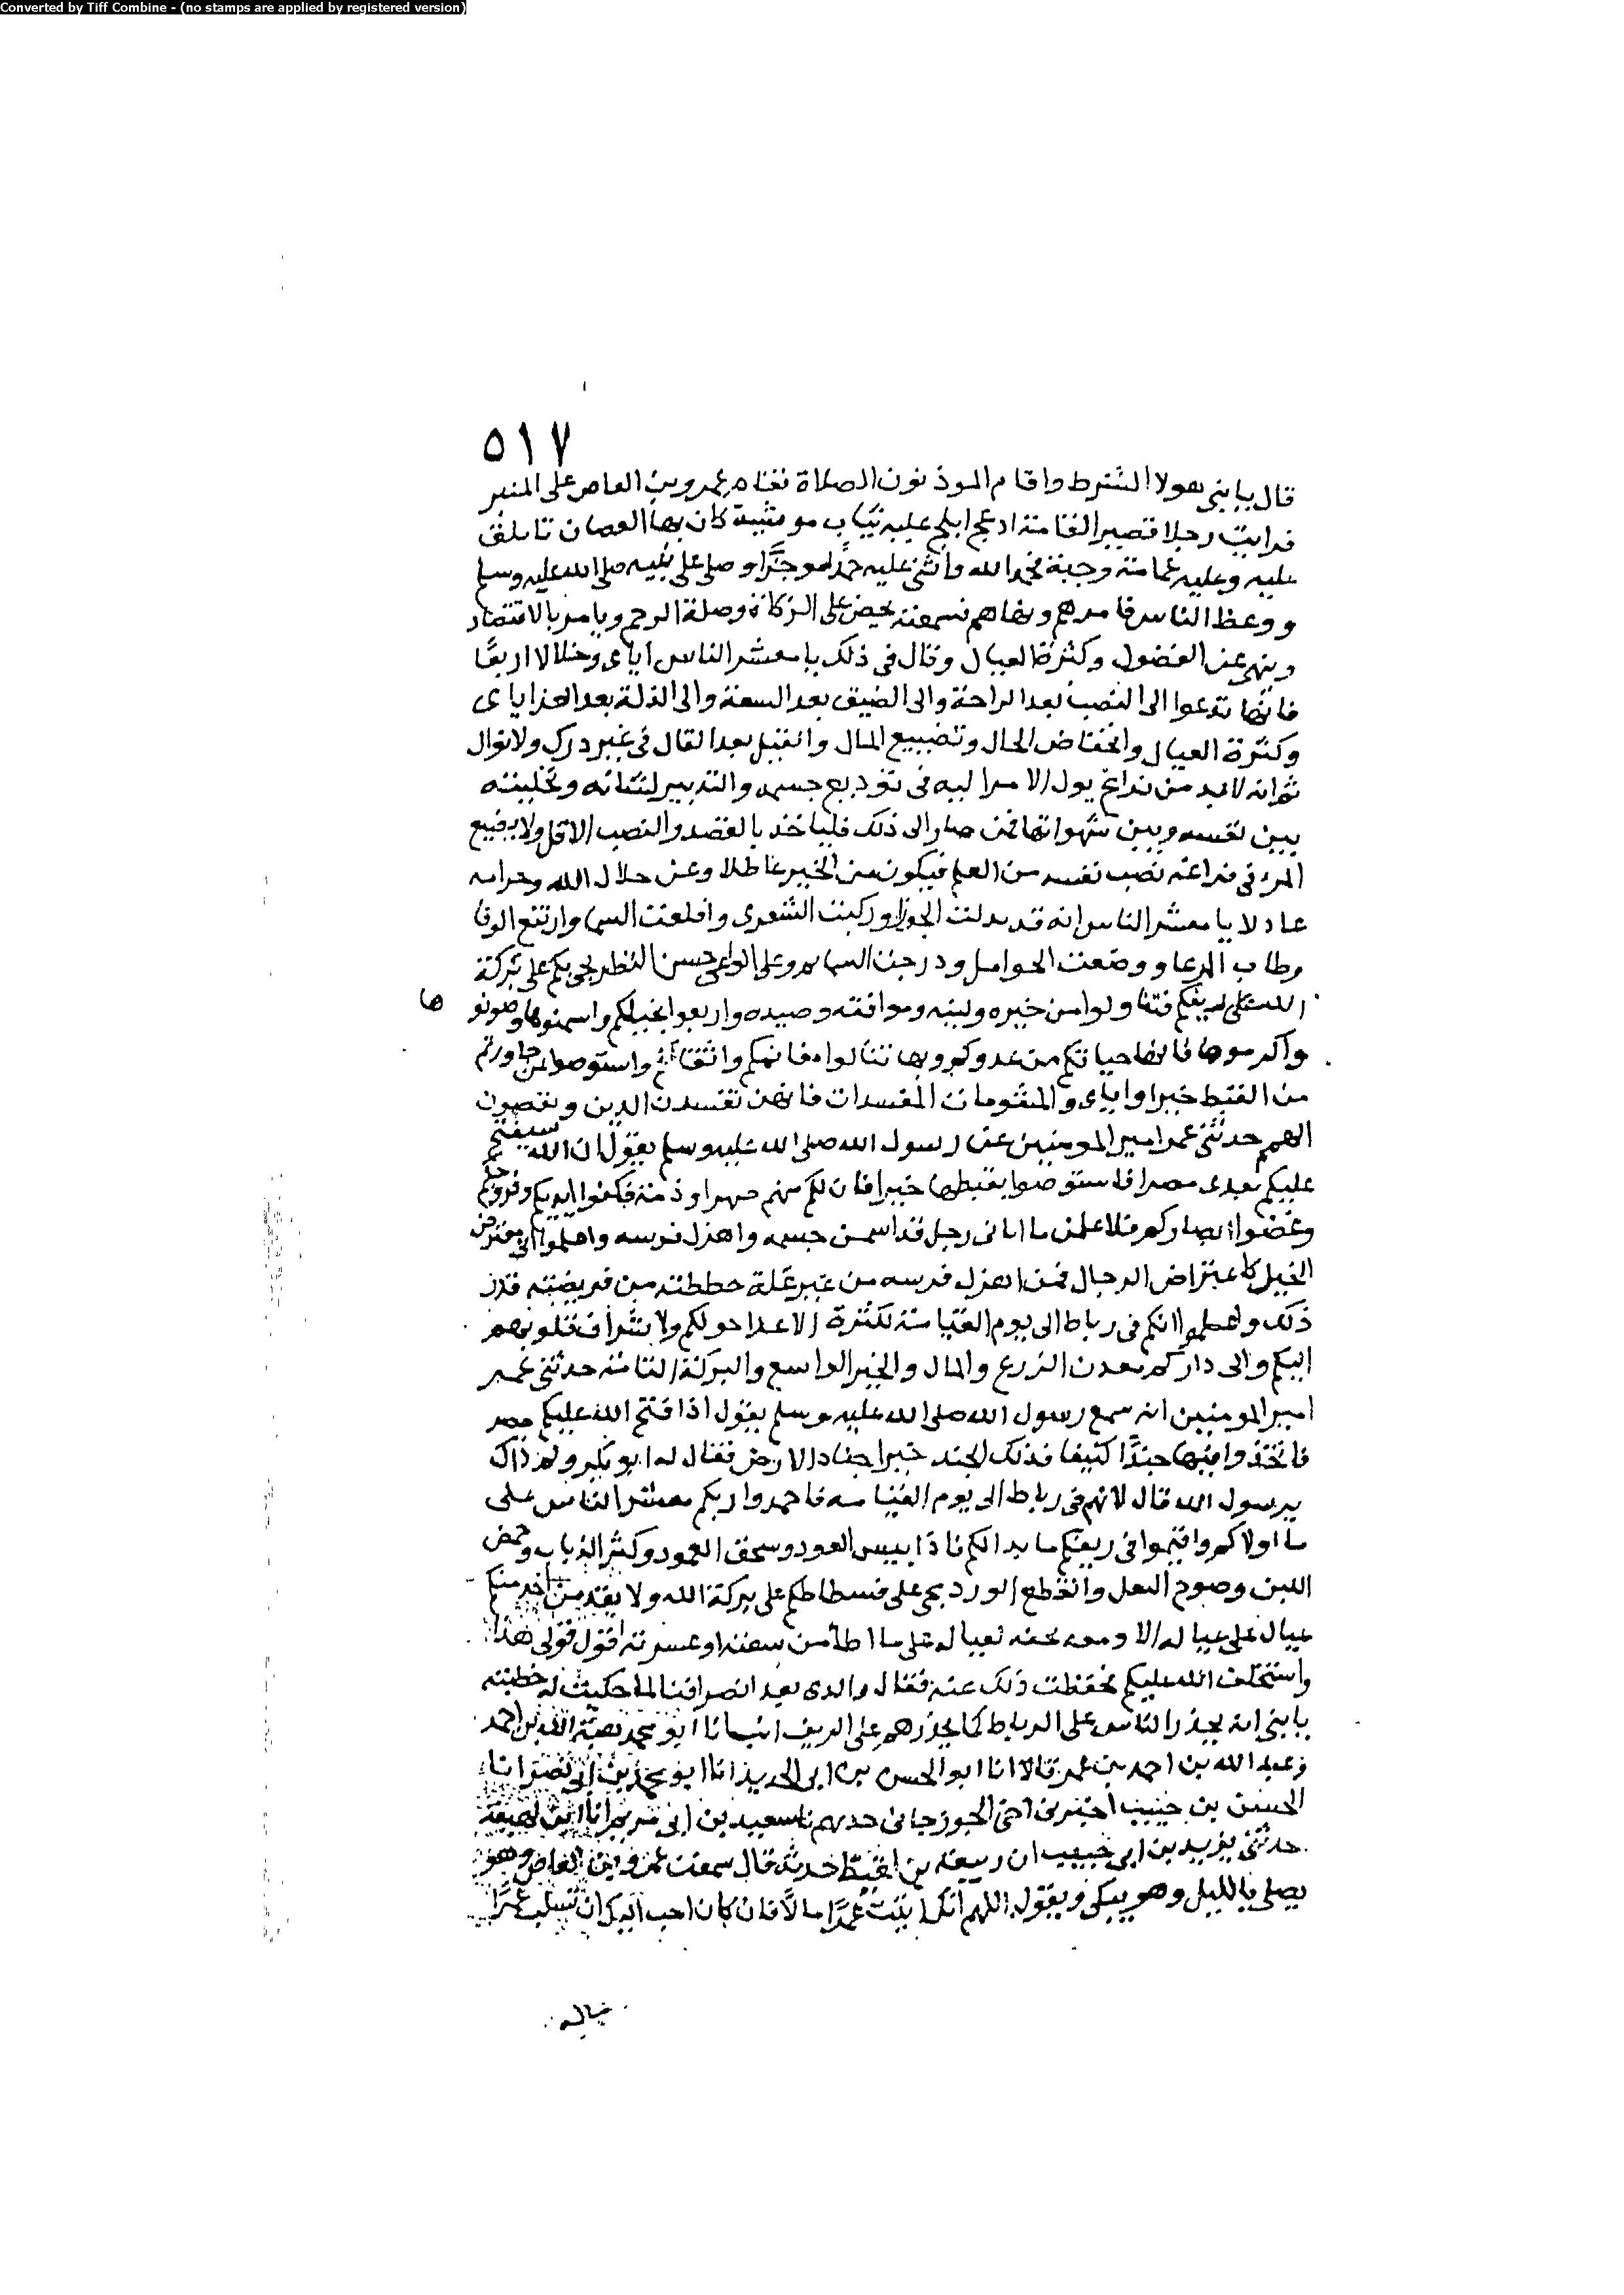 Converted by Tiff Combine - (no stamps are applied by registered version)
٥١٧
قال يا بنى هولا الشرط واقام الموذنون الصلاة فقام عمرو بن العاص على المنبر
فرايت رجلا قصير القامة ادعج ابلج عليه ثياب موشية كان بها العقيان تاتلق
عليه وعليه عمامة وجبة فحمد الله واثنى عليه حمدا موجزا وصلى على نبيه صلى الله عليه وسلم
ووعظ الناس فامرهم ونهاهم فسمعته يحض على الزكاة وصلة الرحم ويامر بالاقتصاد
وينهى عن الفضول وكثرة العيال وقال فى ذلك يا معشر الناس اياى وخلالا اربعا
فانها تدعوا الى النصب بعد الراحة والى الضيق بعد السعة والى الذلة بعد العز اياى
وكثرة العيال وانخفاض الحال وتضييع المال والقيل بعد القال فى غير درك ولا نوال
ثم انه لابد من فراغ يول الامر اليه فى توديع جسمه والتدبير لشانه وتخليته
بين نفسه وبين شهواتها فمن صار الى ذلك فلياخذ بالقصد والنصيب الاقل ولا يضيع
المرء فى فراغه نصيب نفسه من العلم فيكون من الخير عاطلا وعن حلال الله وحرامه
عادلا يا معشر الناس انه قد تدلت الجوزا وركبت الشعرى واقلعت السما وارتفع الوبا
وطاب المرعا ووضعت الحوامل ودرجت السمايم وعلى الراعى حسن النظر فحى بكم على بركة
الله على ريفكم فتناولوا من خيره ولبنه وموافقه وصيده واربعوا بخيلكم واسمنوها وصونوها
واكرموها فانها حياتكم من عدوكم وبها تنالوا مغانمكم واثقالكم واستوصوا بمن جاورتم
من القبط خيرا واياى والمشومات المفسدات فانهن تفسدن الدين وتقصرن
الهمم حدثنى عمر امير المومنين عن رسول الله صلى الله عليه وسلم يقول ان الله سيفتح
عليكم بعدى مصر فاستوصوا بقبطها خيرا فان لكم منهم صهرا وذمة فكفوا ايديكم وفروجكم
وغضوا ابصاركم فلا اعلمن ما اتانى رجل قد اسمن جسمه واهزل فرسه واعلموا انى معترض
الخيل كاعتراض الرجال فمن اهزل فرسه من غير علة حططته من فريضته قدر
ذلك واعلموا انكم فى رباط الى يوم القيامة لكثرة الاعدا حولكم ولاشراف قلوبهم
اليكم والى داركم معدن الزرع والمال والخير الواسع والبركة النامية حدثنى عمر
امير المومنين انه سمع رسول الله صلى الله عليه وسلم يقول اذا فتح الله عليكم مصر
فاتخذوا فيها جندا كثيفا فذلك الجند خير اجناد الارض فقال له ابو بكر ولم ذاك
يرسول الله قال لانهم فى رباط الى يوم القيامه فاحمدوا ربكم معشر الناس على
ما اولاكم واقيموا فى ريفكم ما بدا لكم فاذا يبس العود وسخن العمود وكثر الذباب وحمض
اللبن وصوح البقل وانقطع الورد فحى على فسطاطكم على بركة الله ولا يقدمن احد منكم
عيال على عياله الا ومعه تحفه لعياله على ما اطاق من سعته او عسرته اقول قولى هذا
واستخلف الله عليكم فحفظت ذلك عنه فقال والدى بعد انصرافنا لما حكيت له خطبته
يا بنى انه يحذر الناس على الرباط كما يحذرهم على الريف انبانا ابو محمد هبة الله بن احمد
وعبد الله بن احمد بن عمر قالا انا ابو الحسن بن ابى الحديد انا ابو محمد بن ابى نصر انا
الحسن بن حبيب اخبرنى اخى الجوزجانى حدثهم نا سعيد بن ابى مريم انا ابن لهيعة
حدثنى يزيد بن ابى حبيب ان ربيعه بن لقيط حدثه قال سمعت عمرو بن العاص وهو
يصلى بالليل وهو يبكى ويقول اللهم انك اتيت عمرا مالا فان كان احب اليك ان تسلب عمرا
ماله